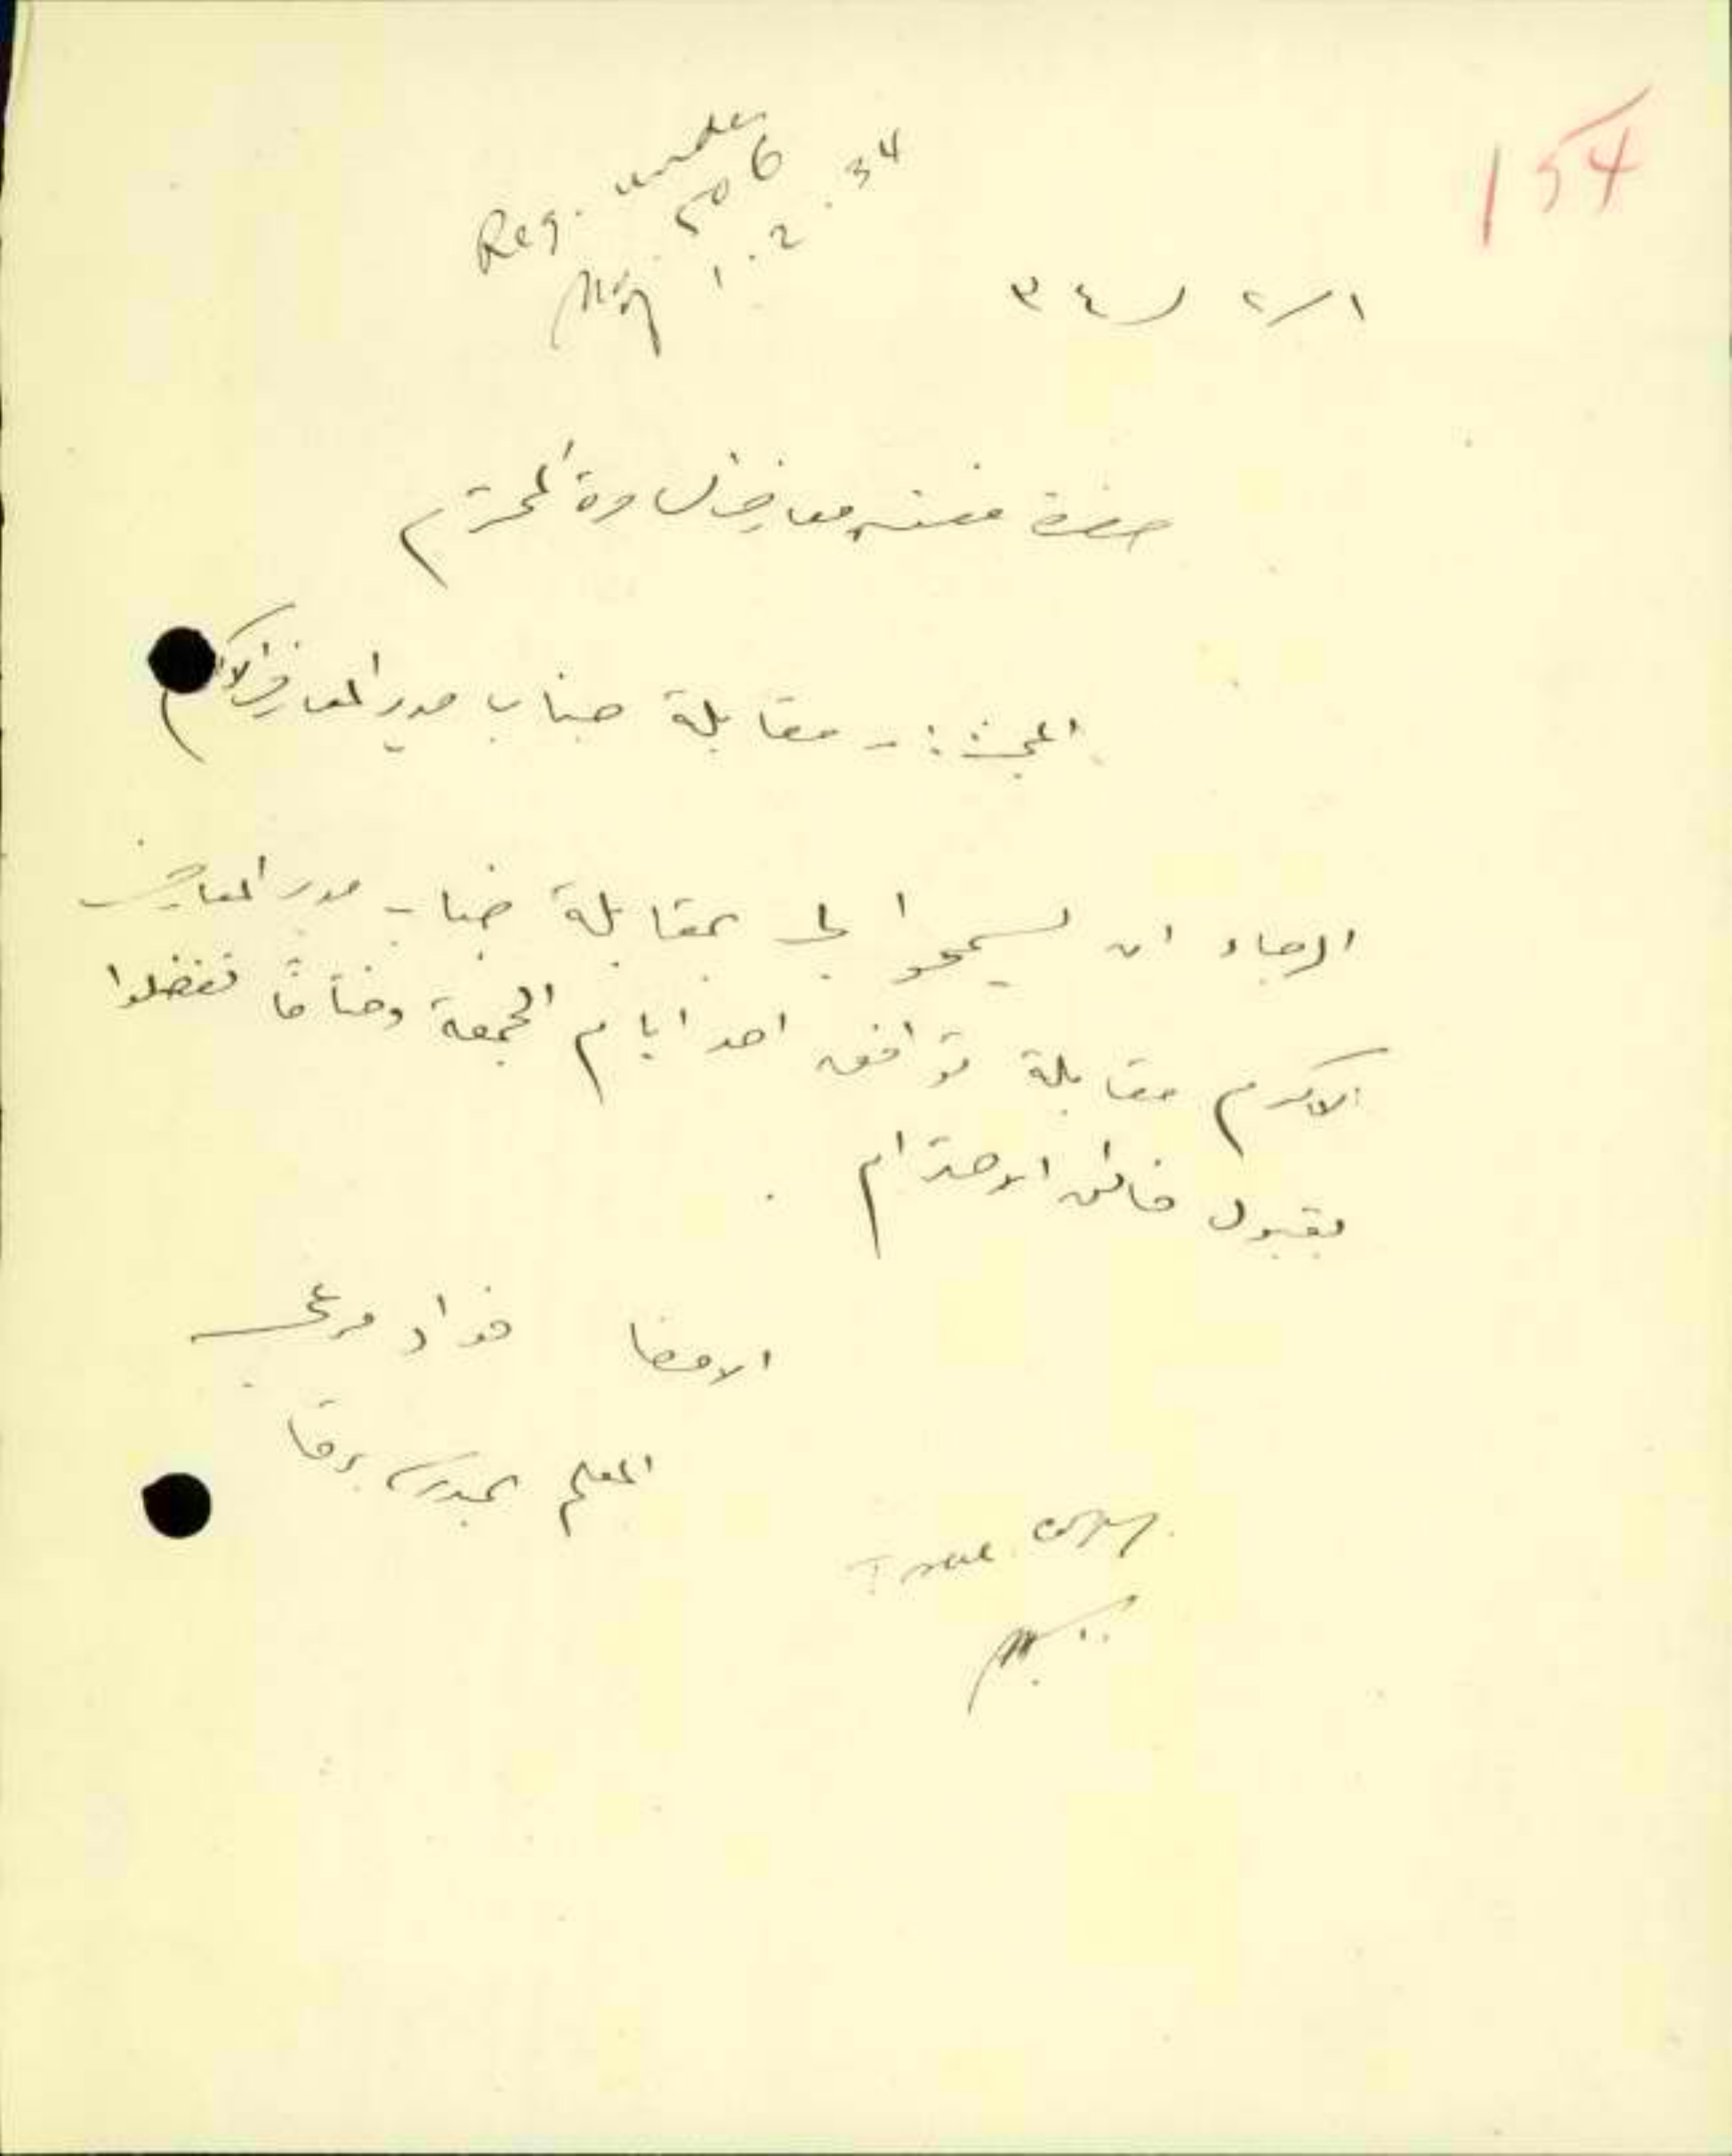 154
Reg. under
506
1.2.34
١/٢/٣٤
حضرة مفتش معارف السامرة المحترم
البحث :- مقابلة جناب مدير المعارف الاكرم
الرجاء ان تسمحوا لي بمقابلة جناب مدير المعارف
الاكرم مقابلة توافق احد ايام الجمعة وختاماً تفضلوا
بقبول فائق الاحترام .
الامضا فؤاد مرعي
المعلم بمدرسة برقا
True copy.